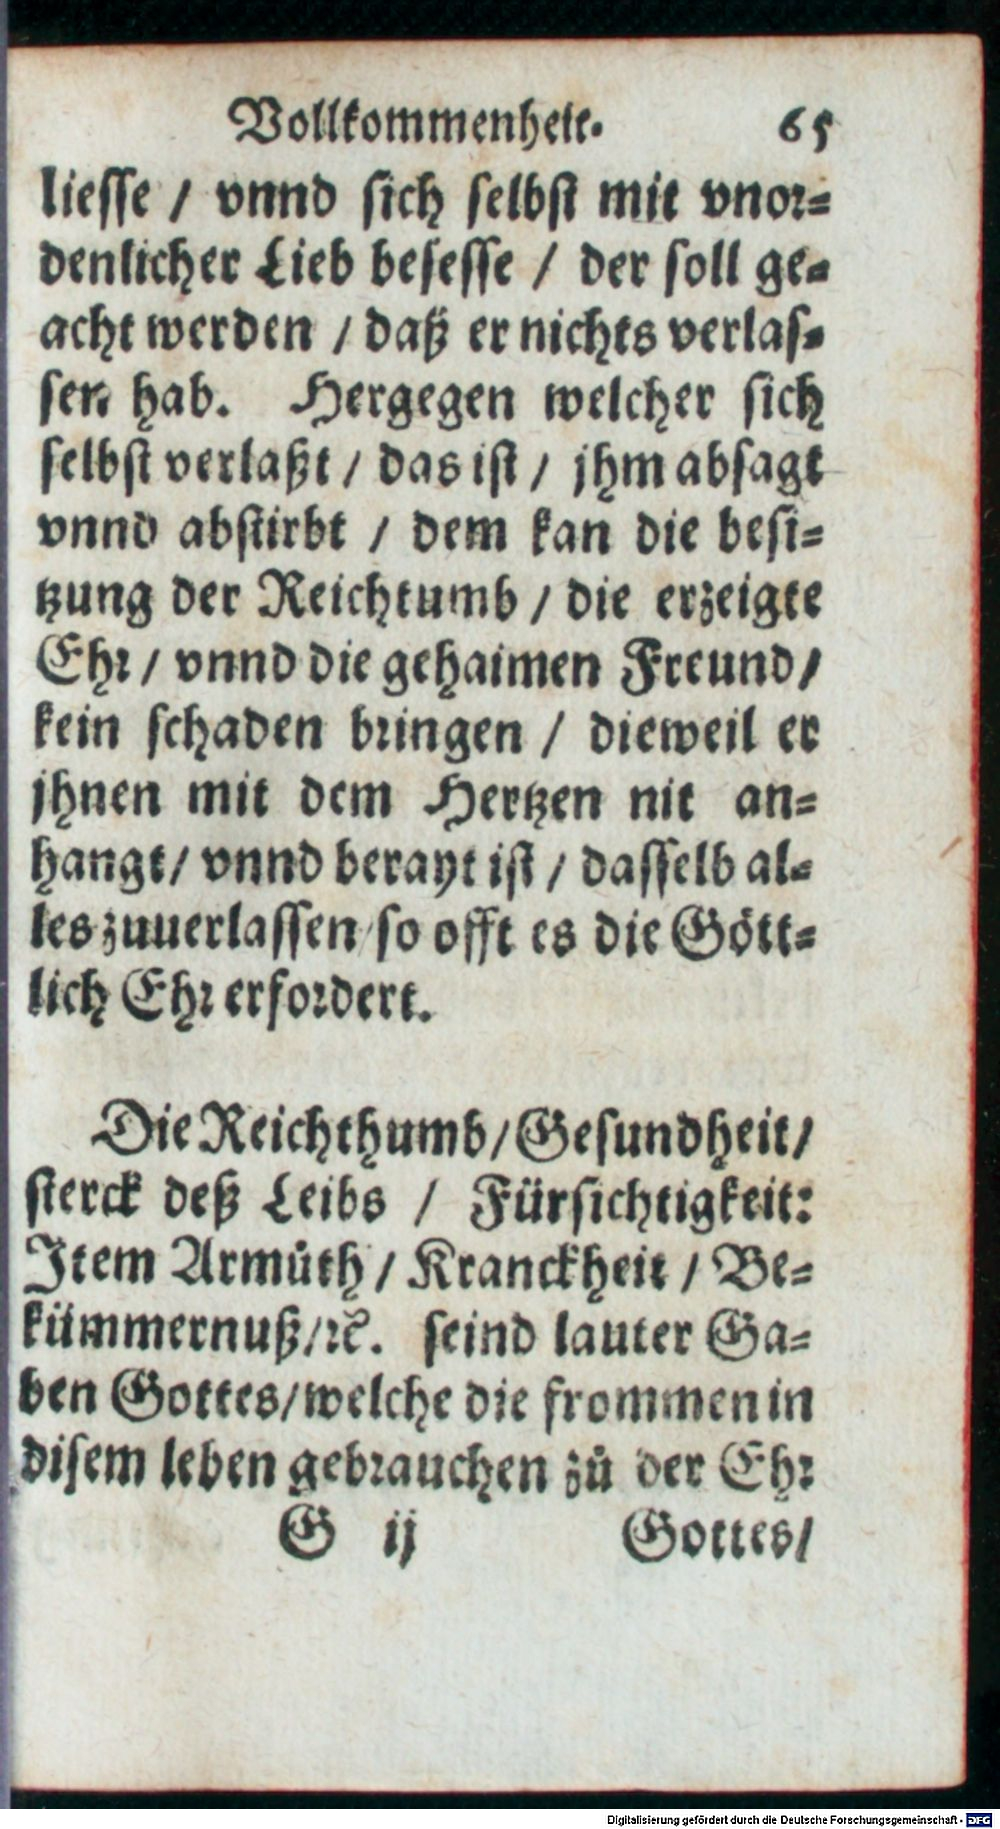 Vollkommenheit. 65
liesse / vnnd sich selbst mit vnor-
denlicher Lieb besesse / der soll ge-
acht werden / daß er nichts verlas-
sen hab. Hergegen welcher sich
selbst verlaßt / das ist / jhm absagt
vnnd abstirbt / dem kan die besi-
tzung der Reichtumb / die erzeigte
Ehr / vnnd die gehaimen Freund /
kein schaden bringen / dieweil er
jhnen mit dem Hertzen nit an-
hangt / vnnd berayt ist / dasselb al-
les zuuerlassen / so offt es die Gött-
lich Ehr erfordert.
Die Reichthumb / Gesundheit /
sterck deß Leibs / Fürsichtigkeit:
Item Armůth / Kranckheit / Be-
kümmernuß / ꝛc. seind lauter Ga-
ben Gottes / welche die frommen in
disem leben gebrauchen zů der Ehr
G ij Gottes /
Digitalisierung gefördert durch die Deutsche Forschungsgemeinschaft - DFG